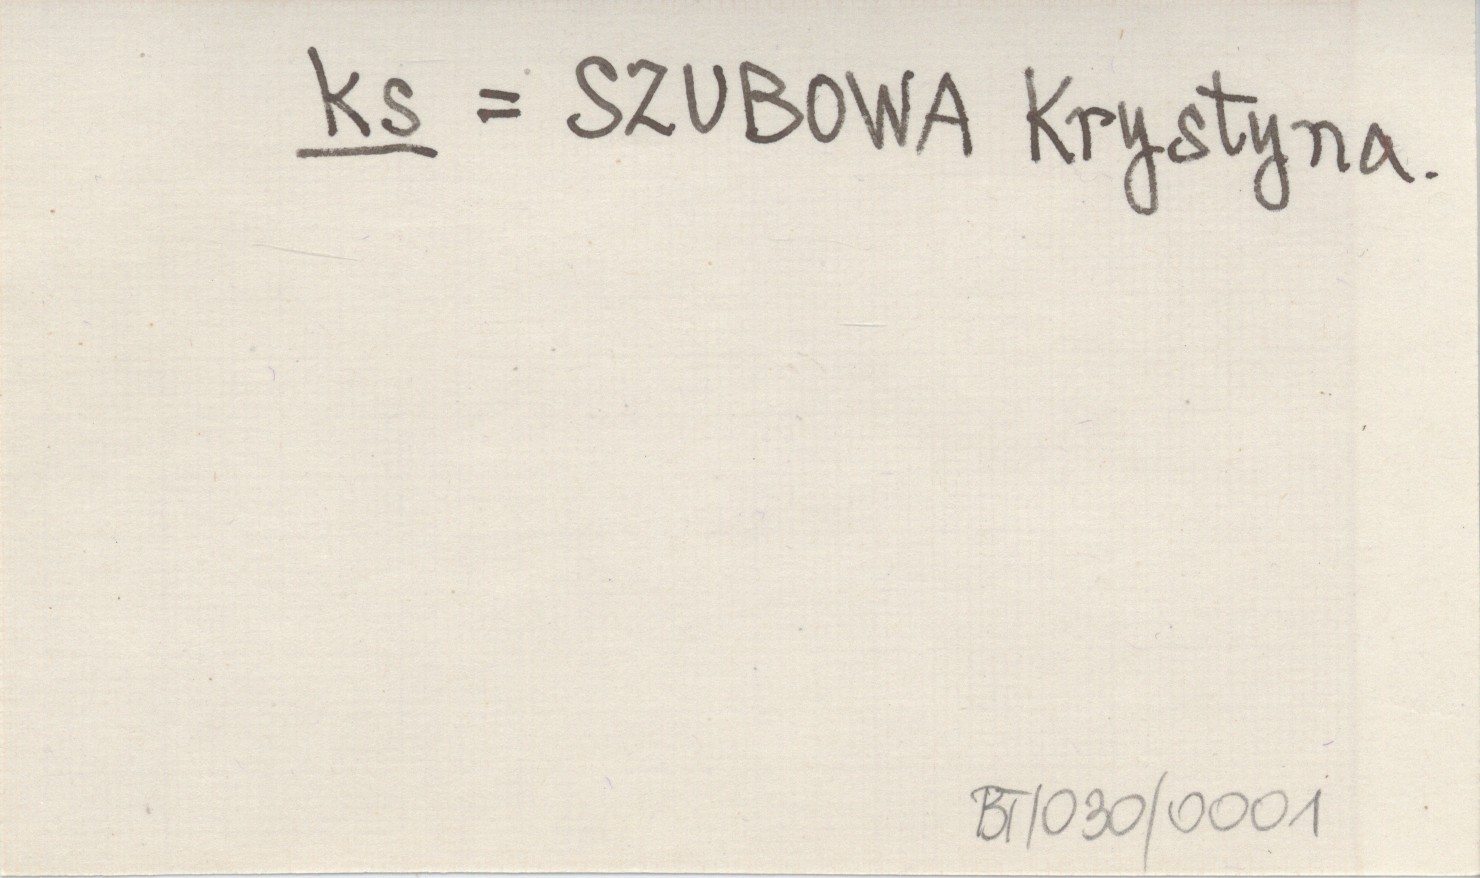 ks = SZUBOWA Krystyna.
BT/030/0001